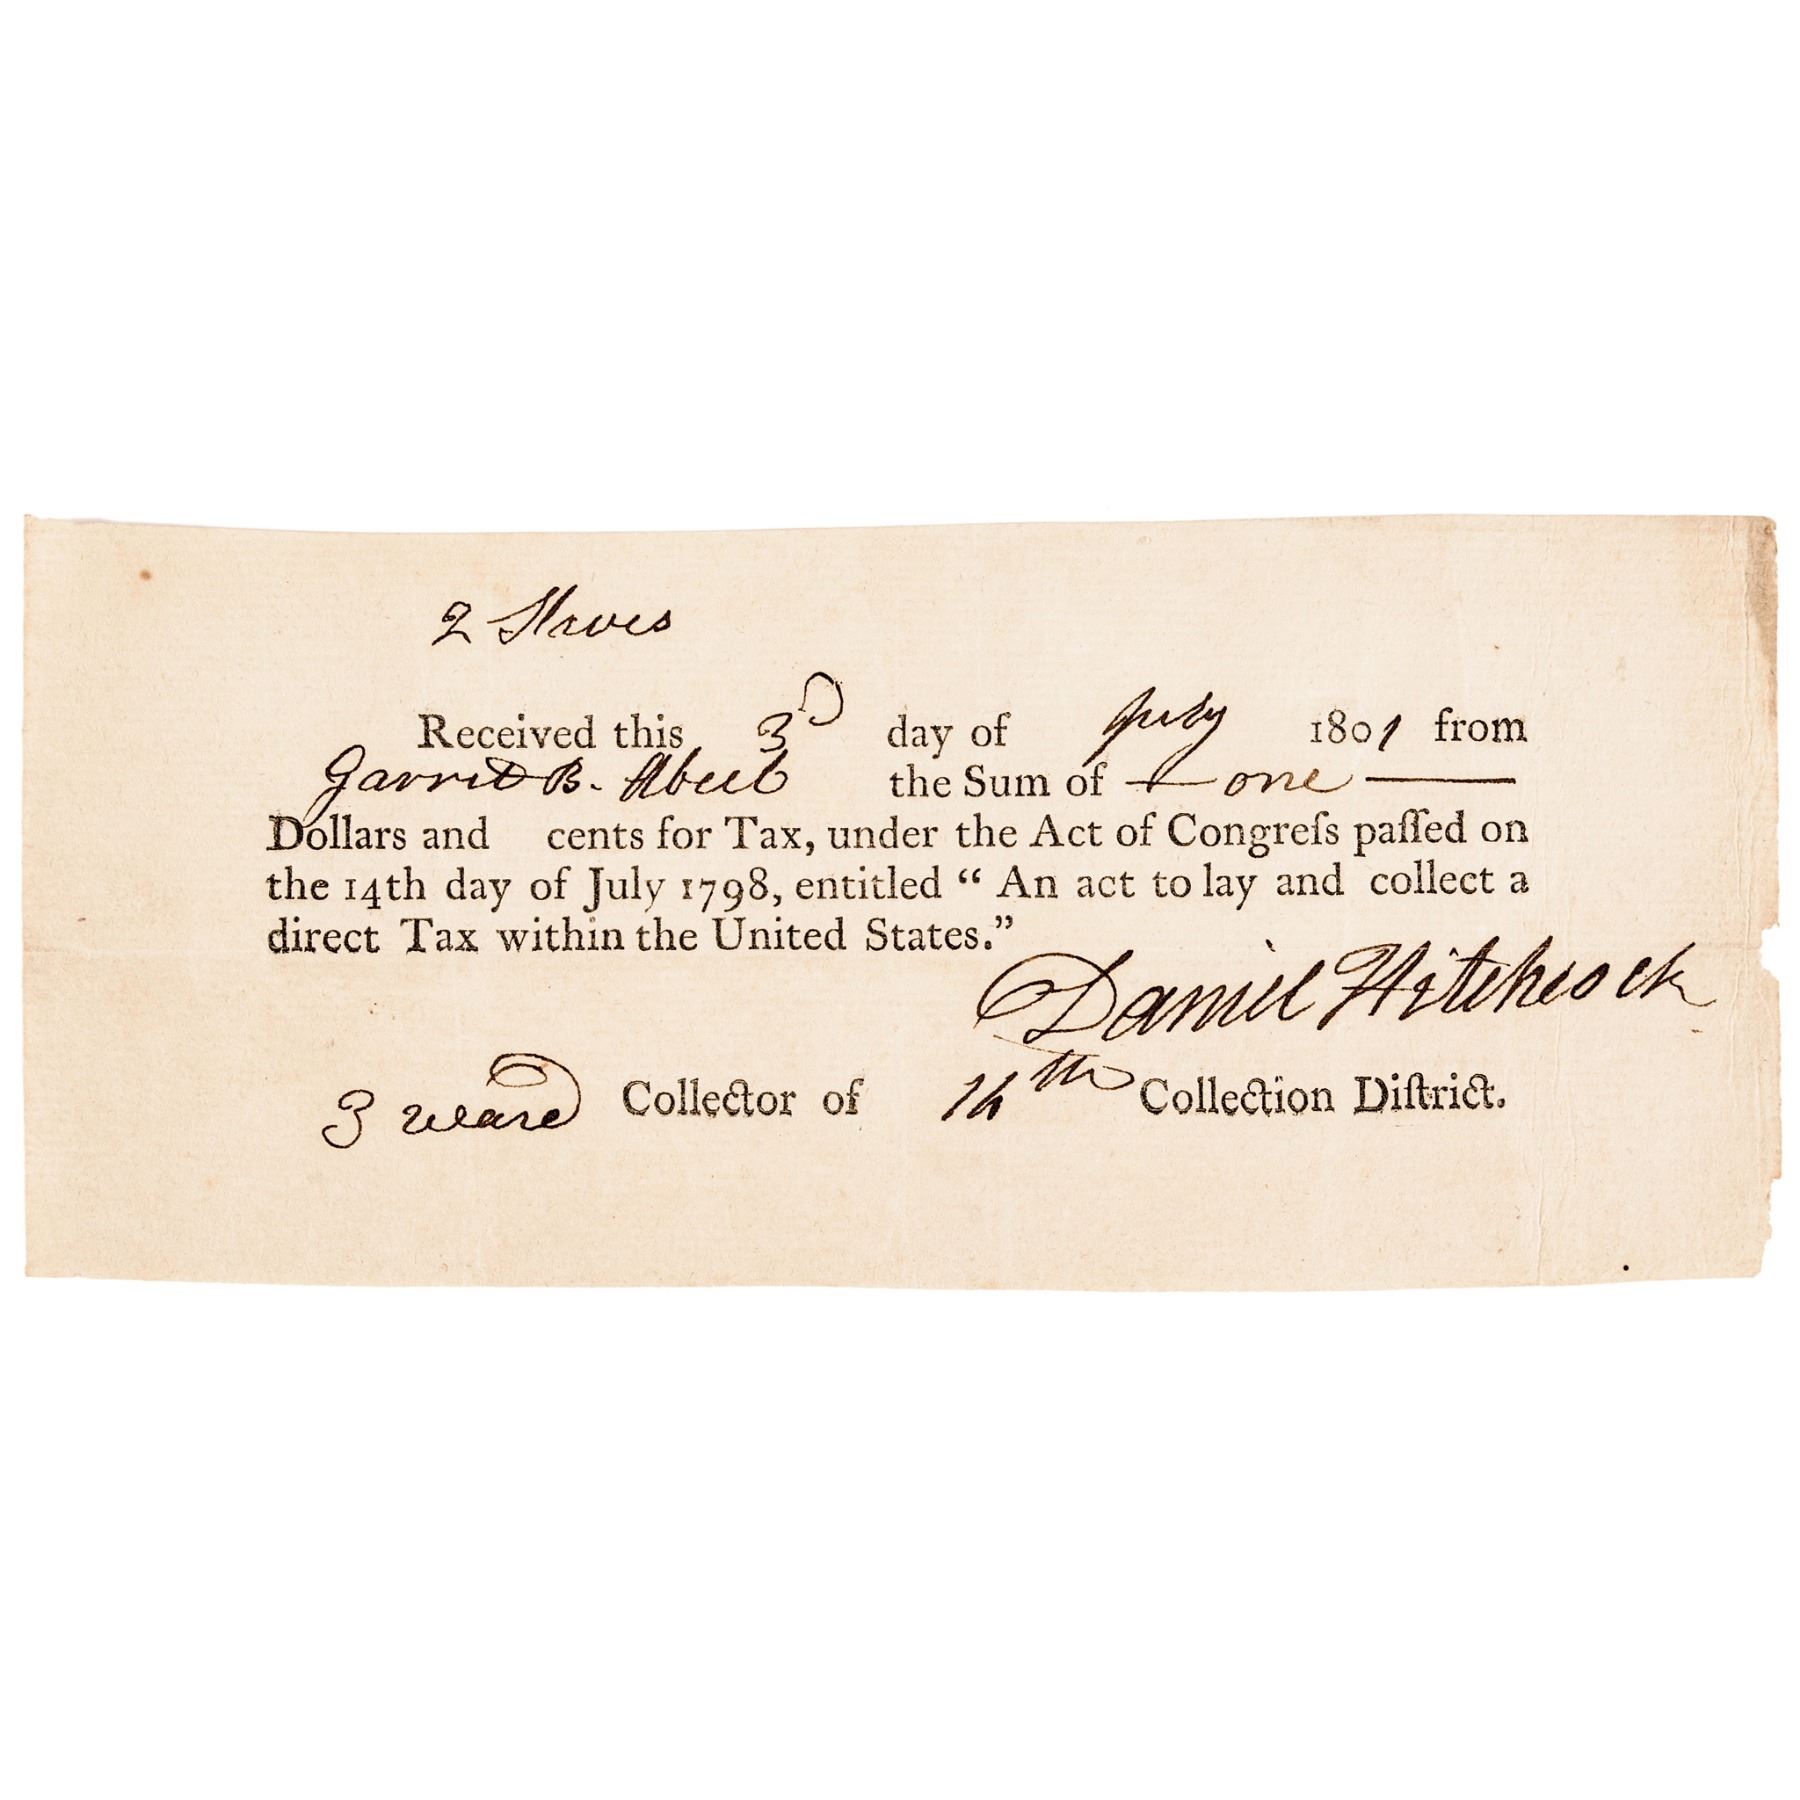 2 Slaves
Received this 3d day of July 1801 from
Garrit B. Abeel the Sum of one
Dollars and cents for Tax, under the Act of Congreſs paſſed on
the 14th day of July 1798, entitled “ An act to lay and collect a
direct Tax within the United States.”
Daniel Hitchcock
3 ward Collector of 14th Collection Diſtrict.